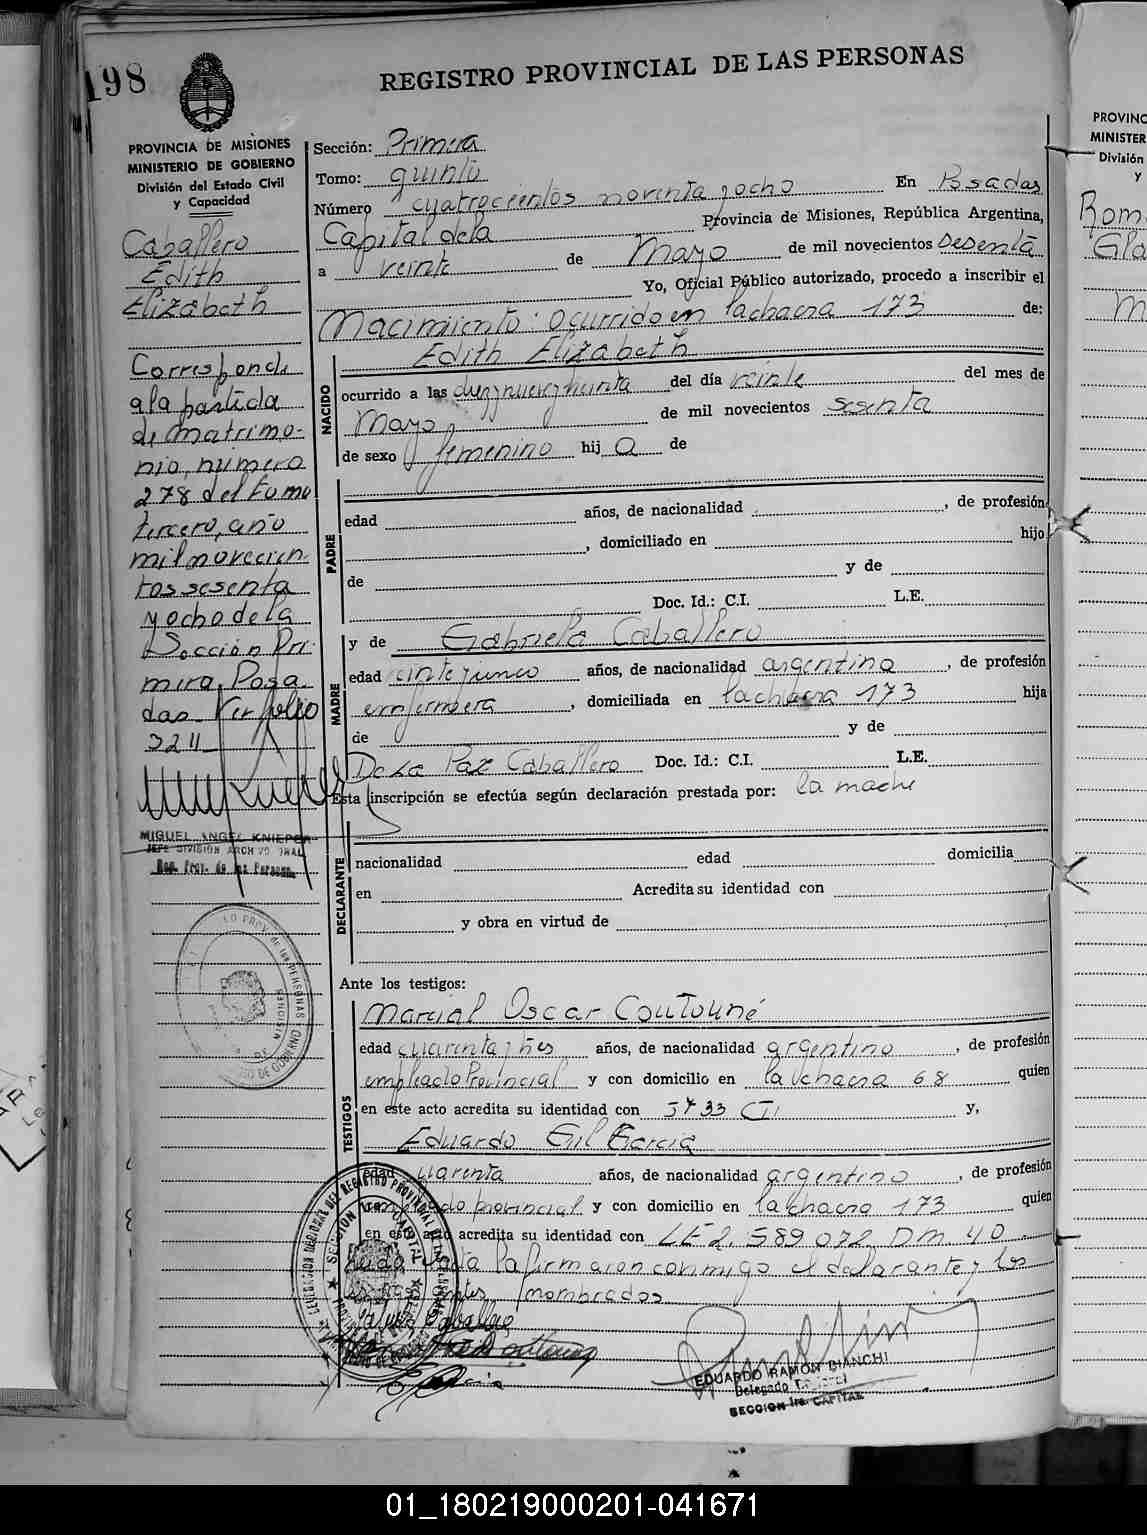 198
REGISTRO PROVINCIAL DE LAS PERSONAS
PROVINCIA DE MISIONES
MINISTERIO DE GOBIERNO
División del Estado Civil
y Capacidad
Caballero
Edith
Elizabeth
Corresponde
a la partida
de matrimo-
nio, número
278 del tomo
tercero, año
mil novecien
tos sesenta
y ocho de la
Sección Pri
mera, Posa
das. Ver folio
3211
MIGUEL ANGEL KNIEPER
JEFE DIVISIÓN ARCHIVO GRAL
Reg. Prov. de las Personas
Sección: Primera
Tomo: quinto
Número cuatrocientos noventa y ocho En Posadas
Capital de la Provincia de Misiones, República Argentina,
a veinte de Mayo de mil novecientos sesenta
Yo, Oficial Público autorizado, procedo a inscribir el
Nacimiento: ocurrido en la chacra 173 de:
Edith Elizabeth
NACIDO
ocurrido a las diez y nueve y treinta del día veinte del mes de
Mayo de mil novecientos sesenta
de sexo femenino hij a de
PADRE
edad años, de nacionalidad , de profesión
, domiciliado en hijo
de y de
Doc. Id.: C.I. L.E.
MADRE
y de Gabriela Caballero
edad veinte y cinco años, de nacionalidad argentina , de profesión
enfermera , domiciliada en la chacra 173 hija
de y de
De La Paz Caballero Doc. Id.: C.I. L.E.
Esta inscripción se efectúa según declaración prestada por: la madre
DECLARANTE
nacionalidad edad domicilia
en Acredita su identidad con
y obra en virtud de
Ante los testigos:
TESTIGOS
Marcial Oscar Coutouné
edad cuarenta y tres años, de nacionalidad argentino , de profesión
empleado Provincial y con domicilio en la chacra 68 quien
en este acto acredita su identidad con 5733 CI y,
Eduardo Gil Garcia
edad cuarenta años, de nacionalidad argentino , de profesión
empleado provincial y con domicilio en la chacra 173 quien
en este acto acredita su identidad con LE 2.589.072 D.M. 40
Leída el acta la firmaron conmigo el declarante y los
nombrados
EDUARDO RAMON BIANCHI
Delegado
SECCION 1ra. CAPITAL
PROVINC
MINISTER
División
y
Rom
Gla
M
01_180219000201-041671